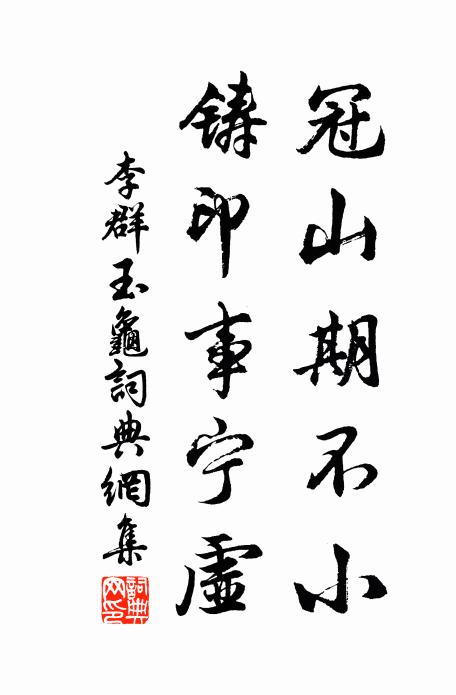 冠山期不小
鑄印事宁虛
李群玉龜詞典網集
詞典網印